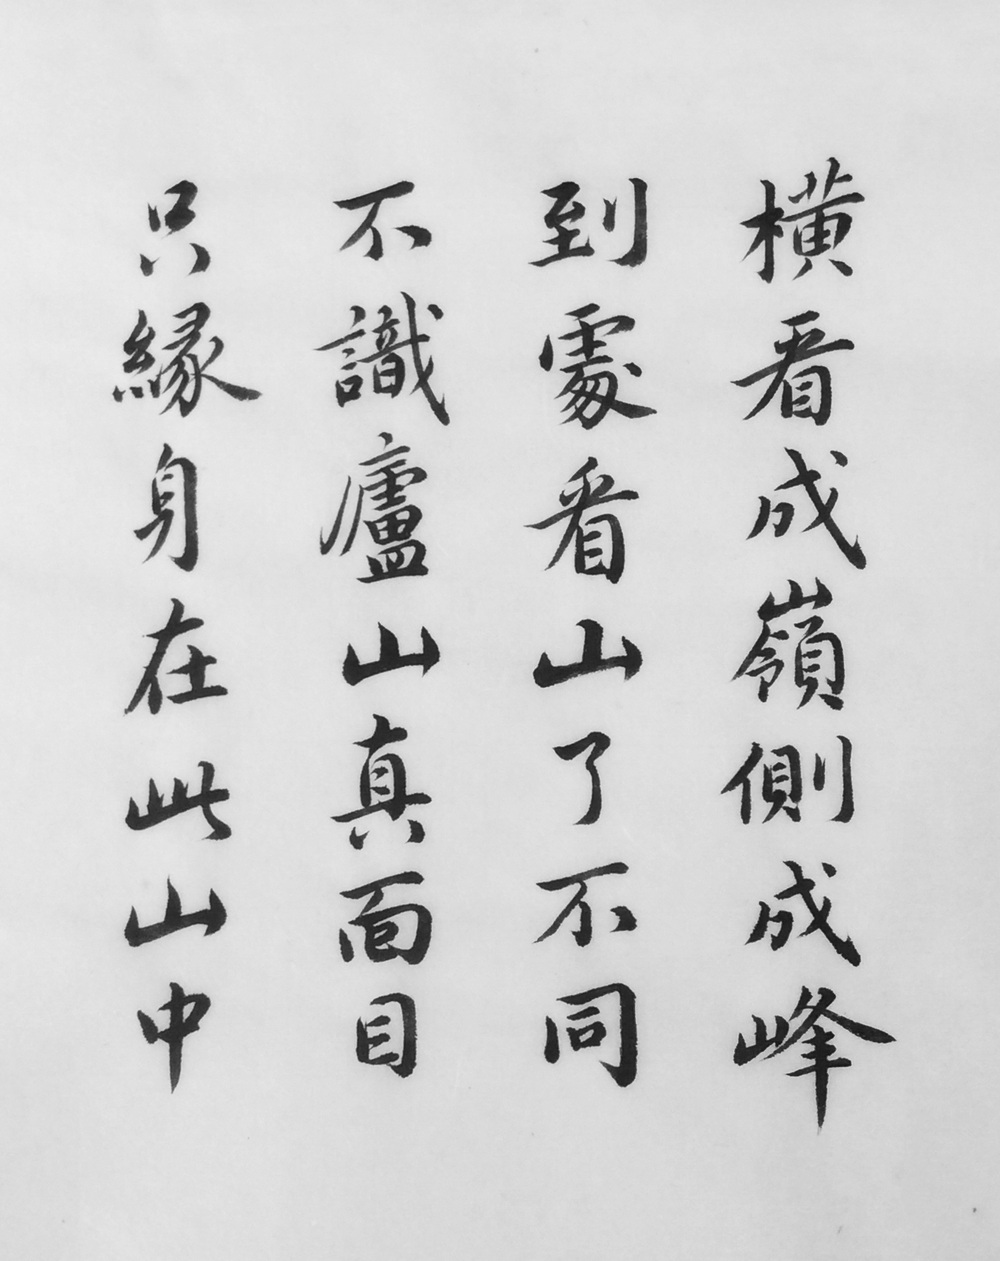 橫看成嶺側成峰
到處看山了不同
不識廬山真面目
只緣身在此山中